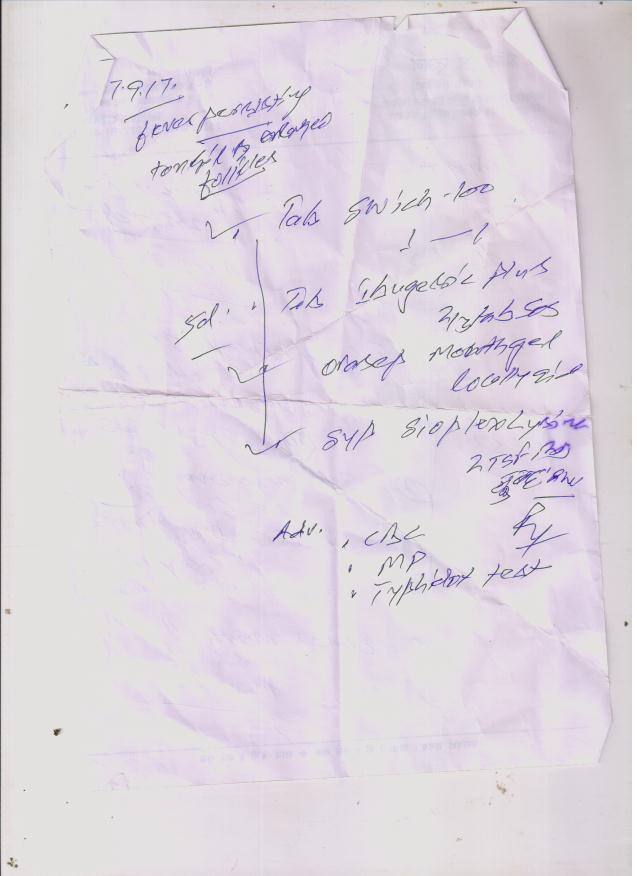 7.9.17.
fever persisting
tonsils enlarged
follicles
Tab Swich-200
1 — 1
5d. Tab Ibugesic plus
1/2 tab sos
orasep mouthgel
locally
Syp Bioplex Lysine
2 TSF
Adv. . CBC
. MP
. Typhidot test